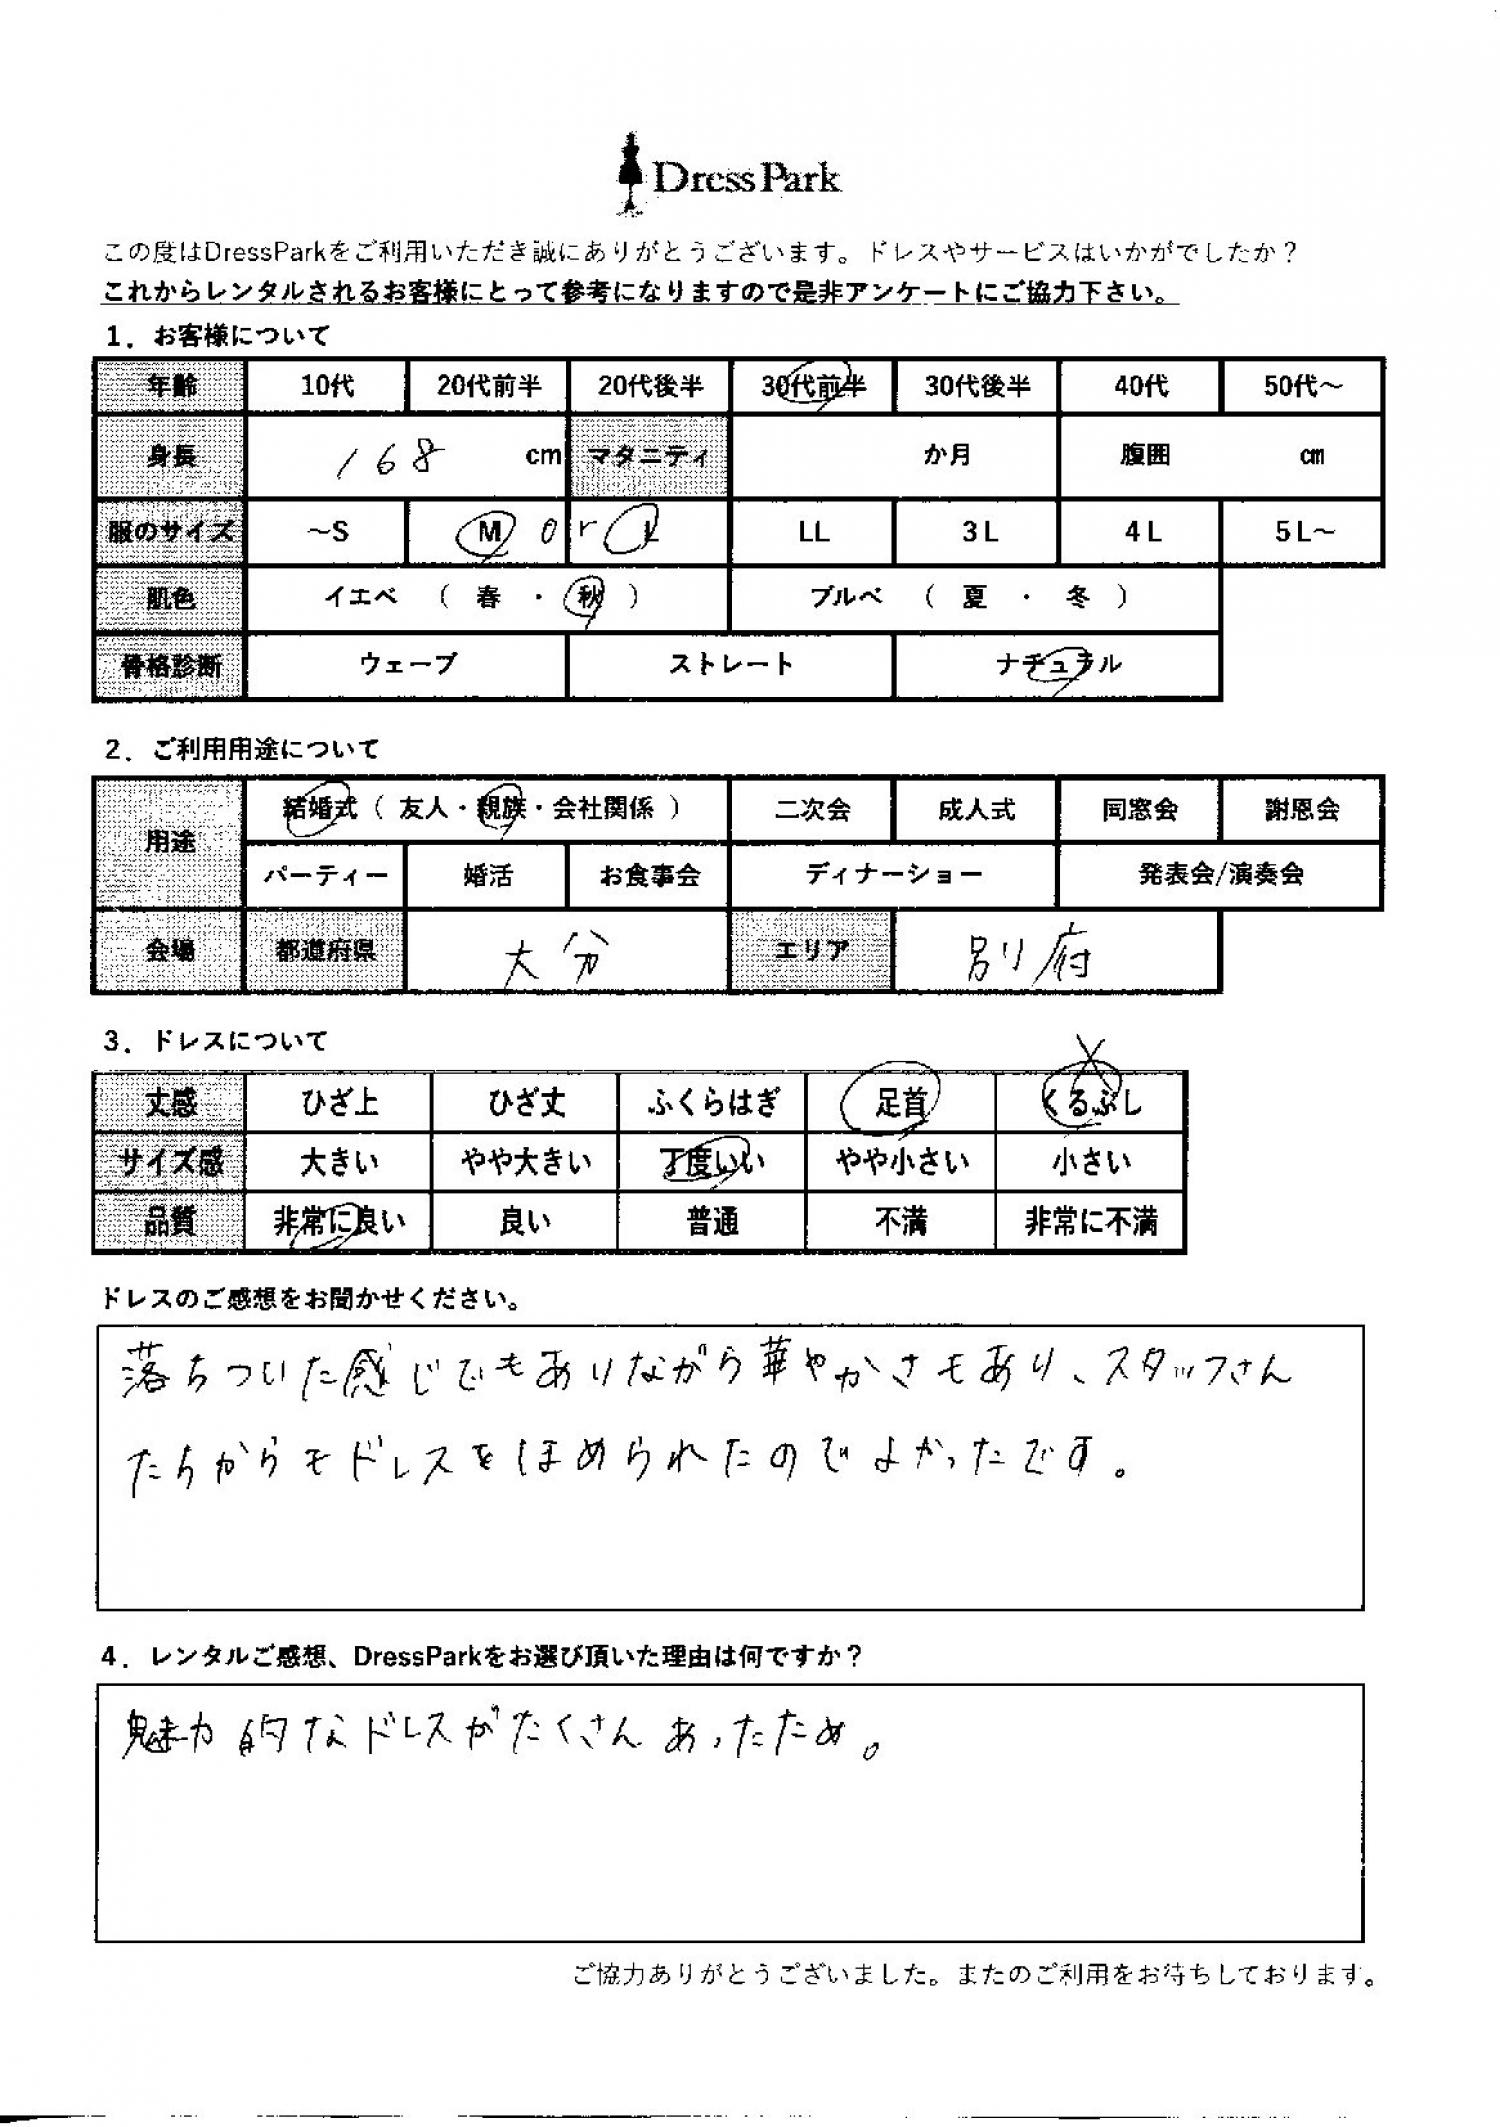 DressPark
この度はDressParkをご利用いただき誠にありがとうございます。ドレスやサービスはいかがでしたか？
これからレンタルされるお客様にとって参考になりますので是非アンケートにご協力下さい。
1．お客様について
年齢 10代 20代前半 20代後半 30代前半 30代後半 40代 50代～
身長 168 cm マタニティ か月 腹囲 ㎝
服のサイズ ～S M or L LL 3L 4L 5L～
肌色 イエベ （ 春 ・ 秋 ） ブルベ （ 夏 ・ 冬 ）
骨格診断 ウェーブ ストレート ナチュラル
2．ご利用用途について
用途 結婚式（ 友人・親族・会社関係 ） 二次会 成人式 同窓会 謝恩会
パーティー 婚活 お食事会 ディナーショー 発表会/演奏会
会場 都道府県 大分 エリア 別府
3．ドレスについて
丈感 ひざ上 ひざ丈 ふくらはぎ 足首 くるぶし
サイズ感 大きい やや大きい 丁度いい やや小さい 小さい
品質 非常に良い 良い 普通 不満 非常に不満
ドレスのご感想をお聞かせください。
落ちついた感じでもありながら華やかさもあり、スタッフさん
たちからもドレスをほめられたのでよかったです。
4．レンタルご感想、DressParkをお選び頂いた理由は何ですか？
魅力的なドレスがたくさんあったため。
ご協力ありがとうございました。またのご利用をお待ちしております。